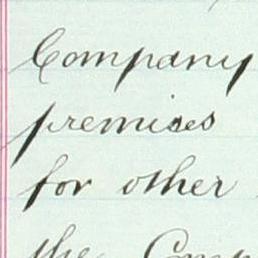 Company
premises
for other
the Comp